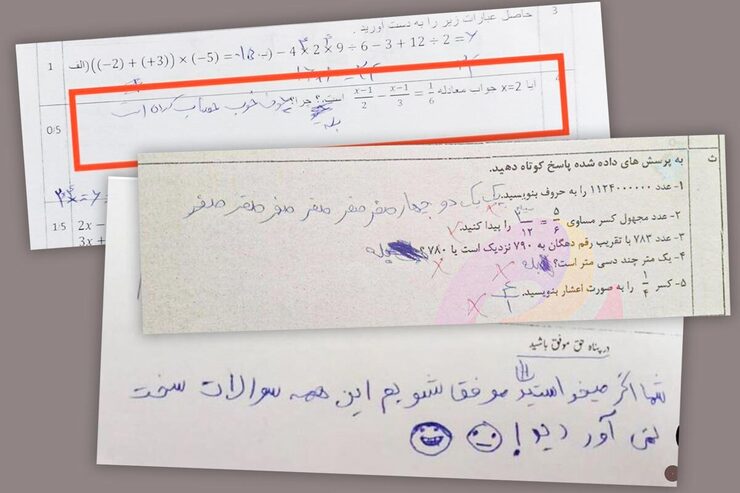 حاصل عبارات زیر را به دست آورید.
3
1
الف) ((−2) + (+3)) × (−5) =
− 4 × 2 × 9 ÷ 6 − 3 + 12 ÷ 2 =
آیا x=2 جواب معادله x−1/2 − x−1/3 = 1/6 است؟ چرا؟ چون خوب حساب کرده است
بله
0/5
1/5
2x −
3x +
ث
به پرسش های داده شده پاسخ کوتاه دهید.
۱- عدد ۱۱۲۴۰۰۰۰۰۰ را به حروف بنویسید. یک یک دو چهار صفر صفر صفر صفر صفر صفر
۲- عدد مجهول کسر مساوی ۵/۶ = /۱۲ را پیدا کنید.
۳- عدد ۷۸۳ با تقریب رقم دهگان به ۷۹۰ نزدیک است یا ۷۸۰؟ بله
۴- یک متر چند دسی متر است؟ بله
۵- کسر ۱/۴ را به صورت اعشار بنویسید. ۴/۱
در پناه حق موفق باشید
شما اگر میخواستید موفق شویم این همه سوالات سخت
نمی آوردید!